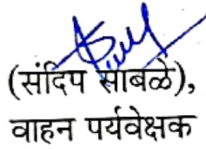 (संदिप साबळे),
वाहन पर्यवेक्षक